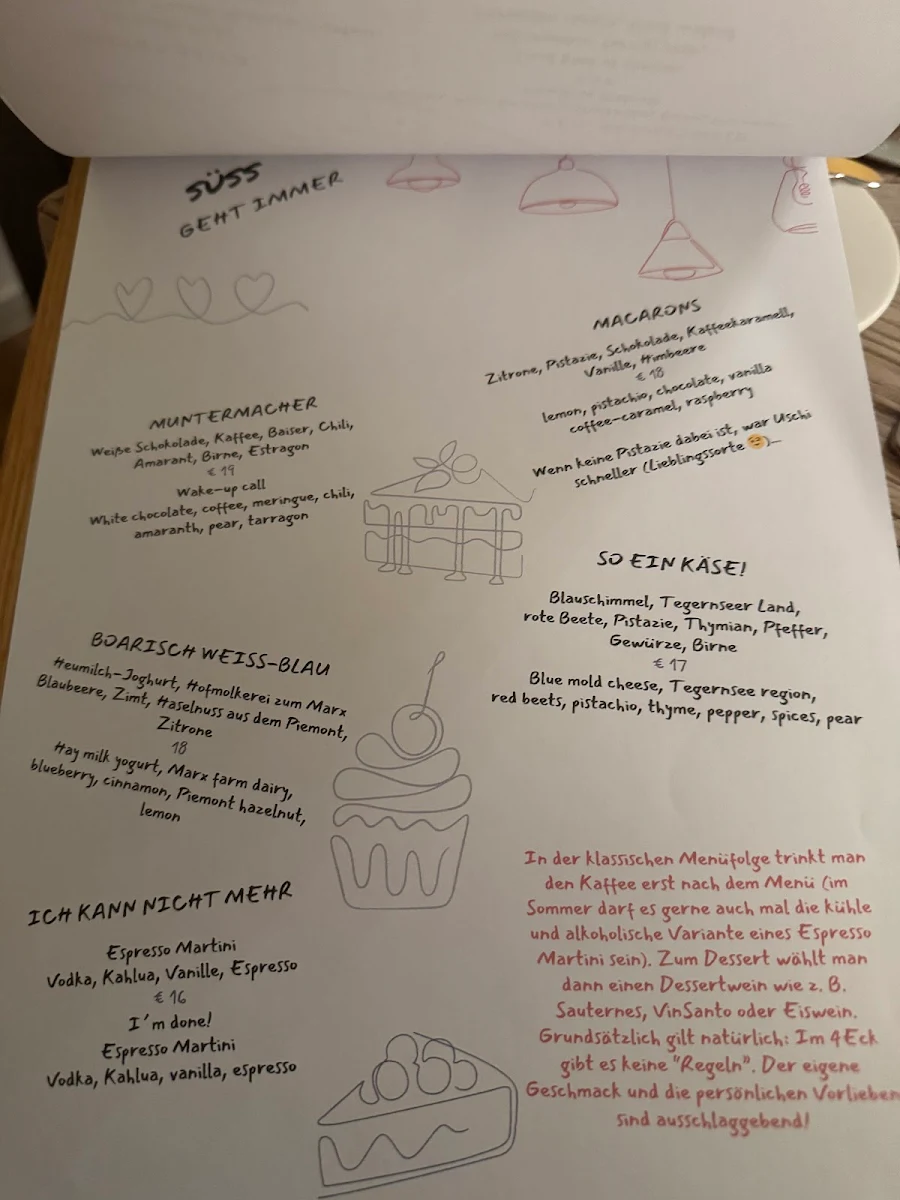 SÜSS
GEHT IMMER
MUNTERMACHER
Weiße Schokolade, Kaffee, Baiser, Chili,
Amarant, Birne, Estragon
€ 19
Wake-up call
White chocolate, coffee, meringue, chili,
amaranth, pear, tarragon
BOARISCH WEISS-BLAU
Heumilch-Joghurt, Hofmolkerei zum Marx
Blaubeere, Zimt, Haselnuss aus dem Piemont,
Zitrone
18
Hay milk yogurt, Marx farm dairy,
blueberry, cinnamon, Piemont hazelnut,
lemon
ICH KANN NICHT MEHR
Espresso Martini
Vodka, Kahlua, Vanille, Espresso
€ 16
I'm done!
Espresso Martini
Vodka, Kahlua, vanilla, espresso
MACARONS
Zitrone, Pistazie, Schokolade, Kaffeekaramell,
Vanille, Himbeere
€ 18
lemon, pistachio, chocolate, vanilla
coffee-caramel, raspberry
Wenn keine Pistazie dabei ist, war Uschi
schneller (Lieblingssorte 😊)...
SO EIN KÄSE!
Blauschimmel, Tegernseer Land,
rote Beete, Pistazie, Thymian, Pfeffer,
Gewürze, Birne
€ 17
Blue mold cheese, Tegernsee region,
red beets, pistachio, thyme, pepper, spices, pear
In der klassischen Menüfolge trinkt man
den Kaffee erst nach dem Menü (im
Sommer darf es gerne auch mal die kühle
und alkoholische Variante eines Espresso
Martini sein). Zum Dessert wählt man
dann einen Dessertwein wie z. B.
Sauternes, VinSanto oder Eiswein.
Grundsätzlich gilt natürlich: Im 4Eck
gibt es keine "Regeln". Der eigene
Geschmack und die persönlichen Vorlieben
sind ausschlaggebend!